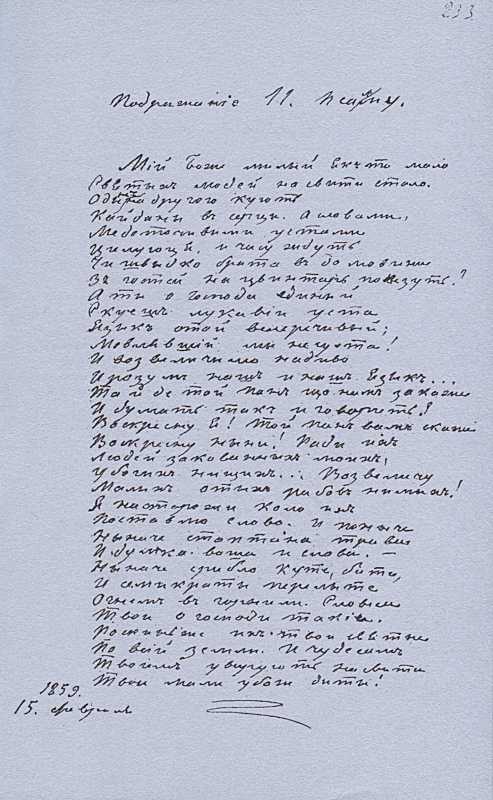 233
Подражаніе 11. Псалму.
Мій Боже милый Якъ то мало
Святыхъ людей на свити стало.
Одынъ на другого куютъ
Кайданы въ серци. А словами,
Медоточивыми устами
Цилуютця, и часу ждутъ
Чи швыдко брата въ домовыни
Зъ гостей на цвинтарь повезутъ?
А ты о Господи единый
Скуешъ лукавіи уста
Языкъ отой велеречивый;
Мовлявшій мы не суета!
И возвеличимо надиво
И розумъ нашъ и нашъ языкъ...
Та й де той панъ що намъ закаже
И думать такъ и говорить?
Воскресну Я! Той панъ вамъ скаже
Воскресну ныни! Ради ихъ
Людей закованыхъ моихъ,
Убогихъ нищихъ... Возвеличу
Малихъ отихъ рабовъ нимыхъ!
Я на сторожи коло ихъ
Поставлю слово. И пониче
Нъначе стоптана трава
И думка ваша и слова. —
Нъначе сребло куте, бите,
И семикраты перелыте
Огнемъ въ горнили. Словеса
Твои о Господи такіи.
Роскинь же ихъ твои святыи
По всій земли. И чудесамъ
Твоимъ увируютъ на свити
Твои мали убоги диты!
1859.
15. февраля